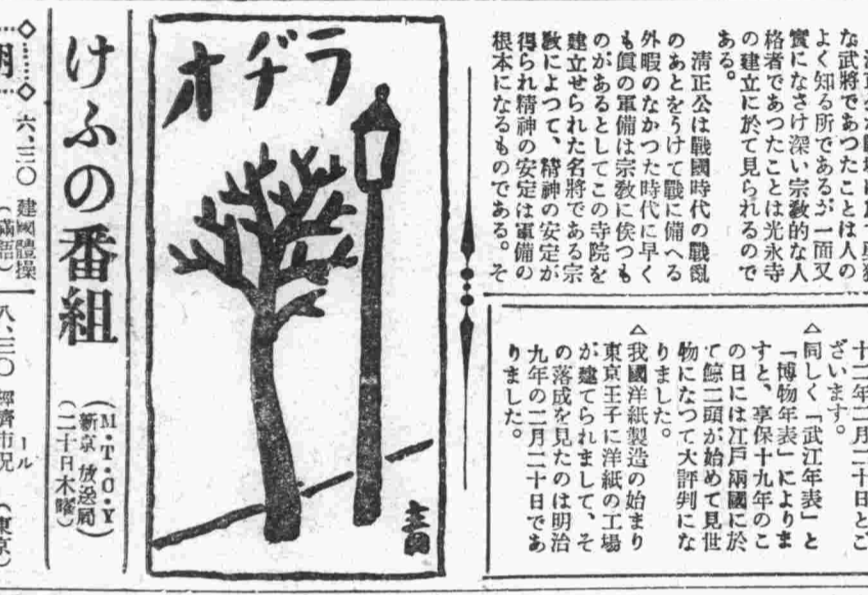 な武將であつたことは人の
よく知る所であるが一面又
實になさけ深い宗敎的な人
格者であつたことは光永寺
の建立に於て見られるので
ある。
淸正公は戰國時代の戰亂
のあとをうけて戰に備へる
外暇のなかつた時代に早く
も眞の軍備は宗敎に俟つも
のがあるとしてこの寺院を
建立せられた名將である宗
敎によつて、精神の安定が
得られ精神の安定は軍備の
根本になるものである。そ
十二年二月二十日とご
ざいます。
△同じく「武江年表」と
「博物年表」によりま
すと、享保十九年のこ
の日には江戶兩國に於
て鯨二頭が始めて見世
物になつて大評判にな
りました。
△我國洋紙製造の始まり
東京王子に洋紙の工場
が建てられまして、そ
の落成を見たのは明治
九年の二月二十日であ
りました。
ラヂオ
けふの番組
(M・T・C・Y
新京放送局)
(二十日木曜)
六、三〇 建國體操
(滿語)
八、三〇 經濟市況
(東京)